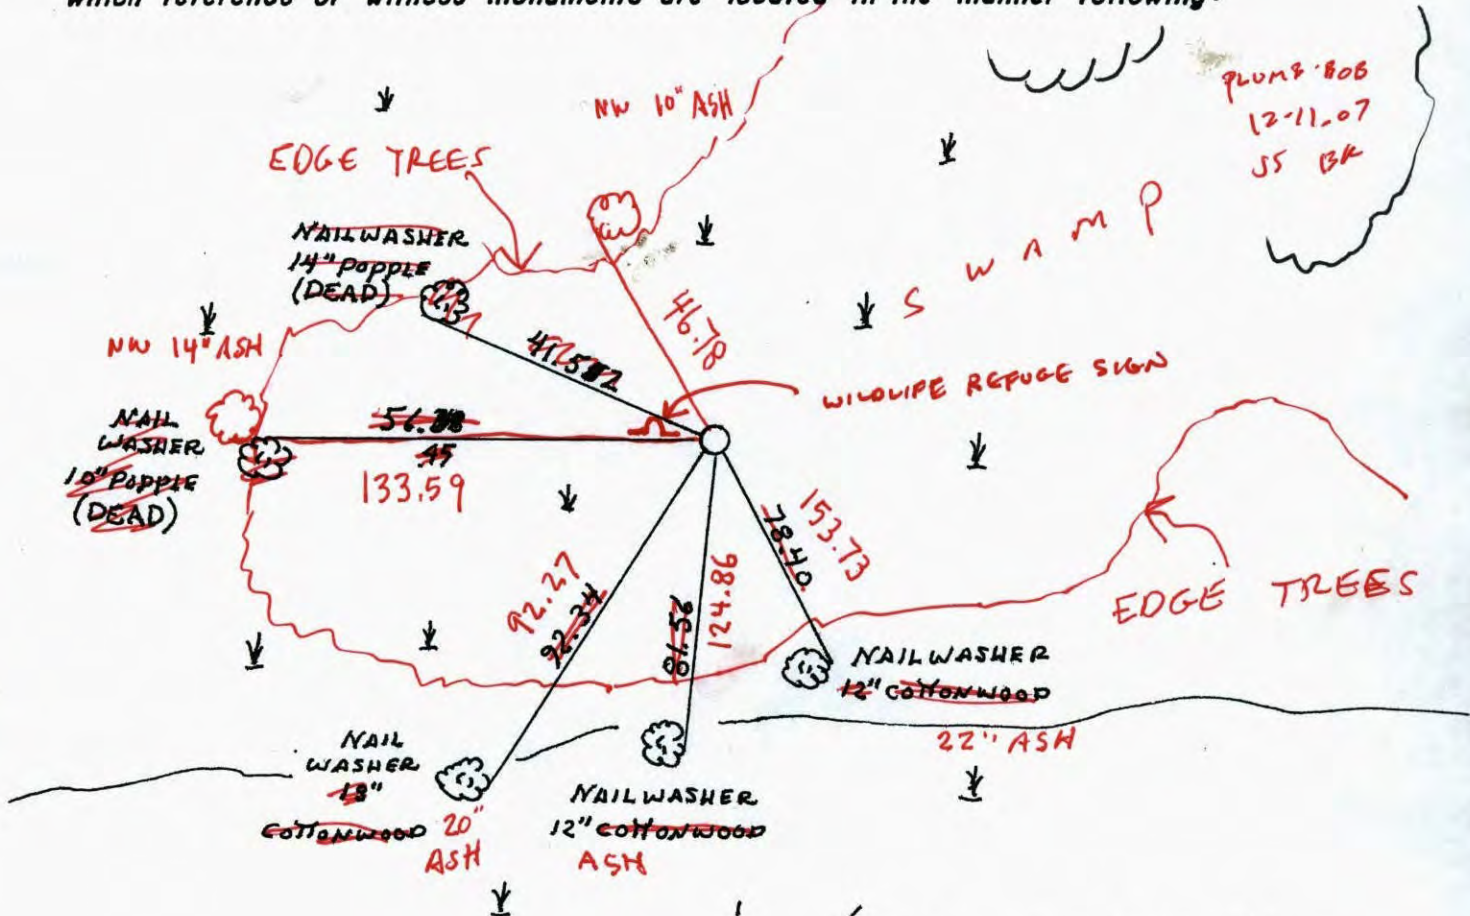 which reference or witness monuments are located in the manner following:
PLUMB-BOB
12-11-07
JS BK
NW 10" ASH
EDGE TREES
SWAMP
NAIL WASHER
14" POPPLE
(DEAD)
NW 14" ASH
46.78
WILDLIFE REFUGE SIGN
NAIL
WASHER
10" POPPLE
(DEAD)
56.
45
133.59
153.73
78.40
92.27
92.34
81.56
124.86
EDGE TREES
NAIL WASHER
12" COTTONWOOD
22" ASH
NAIL
WASHER
18"
COTTONWOOD 20"
ASH
NAIL WASHER
12" COTTONWOOD
ASH